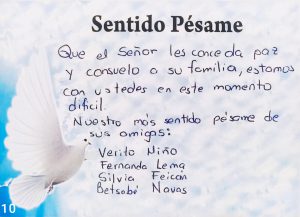 Sentido Pésame
Que el Señor les conceda paz
y consuelo a su familia, estamos
con ustedes en este momento
dificil.
Nuestro más sentido pésame de
sus amigos:
Verito Niño
Fernanda Lema
Silvia Feican
Betsabé Navas
10